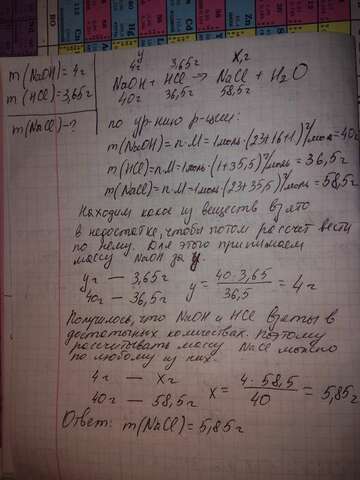 m(NaOH)=4г
m(HCl)=3,65г
m(NaCl)-?
y
4г 3,65г x,г
NaOH + HCl → NaCl + H₂O
40г 36,5г 58,5г
по ур-нию р-ции:
m(NaOH)=n·M=1моль·(23+16+1)г/моль=40г
m(HCl)=n·M=1моль·(1+35,5)г/моль=36,5г
m(NaCl)=n·M=1моль(23+35,5)г/моль=58,5г
Находим какое из веществ взято
в недостатке, чтобы потом рассчет вести
по нему. Для этого принимаем
массу NaOH за y.
yг — 3,65г
40г — 36,5г
y = 40·3,65 / 36,5 = 4г
Получилось, что NaOH и HCl взяты в
достаточных количествах. Поэтому
рассчитывать массу NaCl можно
по любому из них.
4г — xг
40г — 58,5г
x = 4·58,5 / 40 = 5,85г
Ответ: m(NaCl)=5,85г